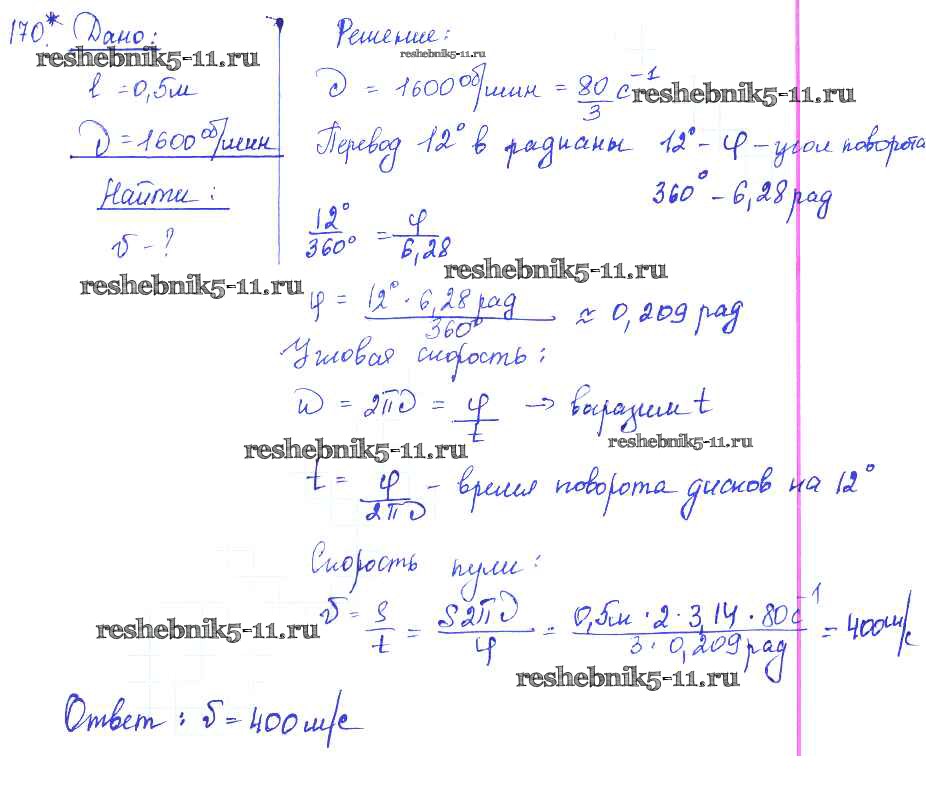 170* Дано:
reshebnik5-11.ru
l = 0,5м
ν = 1600 об/мин
Найти:
v - ?
reshebnik5-11.ru
Решение:
reshebnik5-11.ru
ν = 1600 об/мин = 80/3 с⁻¹
reshebnik5-11.ru
Перевод 12° в радианы 12° - φ - угол поворота
360° - 6,28 рад
12°/360° = φ/6,28
reshebnik5-11.ru
φ = 12° · 6,28 рад / 360° ≈ 0,209 рад
Угловая скорость:
ω = 2πν = φ/t → выразим t
reshebnik5-11.ru
reshebnik5-11.ru
t = φ/2πν - время поворота дисков на 12°
Скорость пули:
v = S/t = S2πν/φ = 0,5м · 2 · 3,14 · 80с⁻¹ / 3 · 0,209 рад = 400 м/с
reshebnik5-11.ru
reshebnik5-11.ru
Ответ: v = 400 м/с